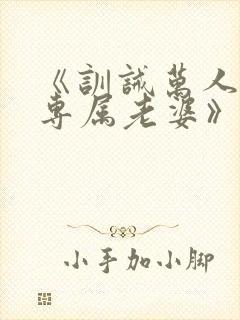 《訓誡萬人
专属老婆》
小手加小脚